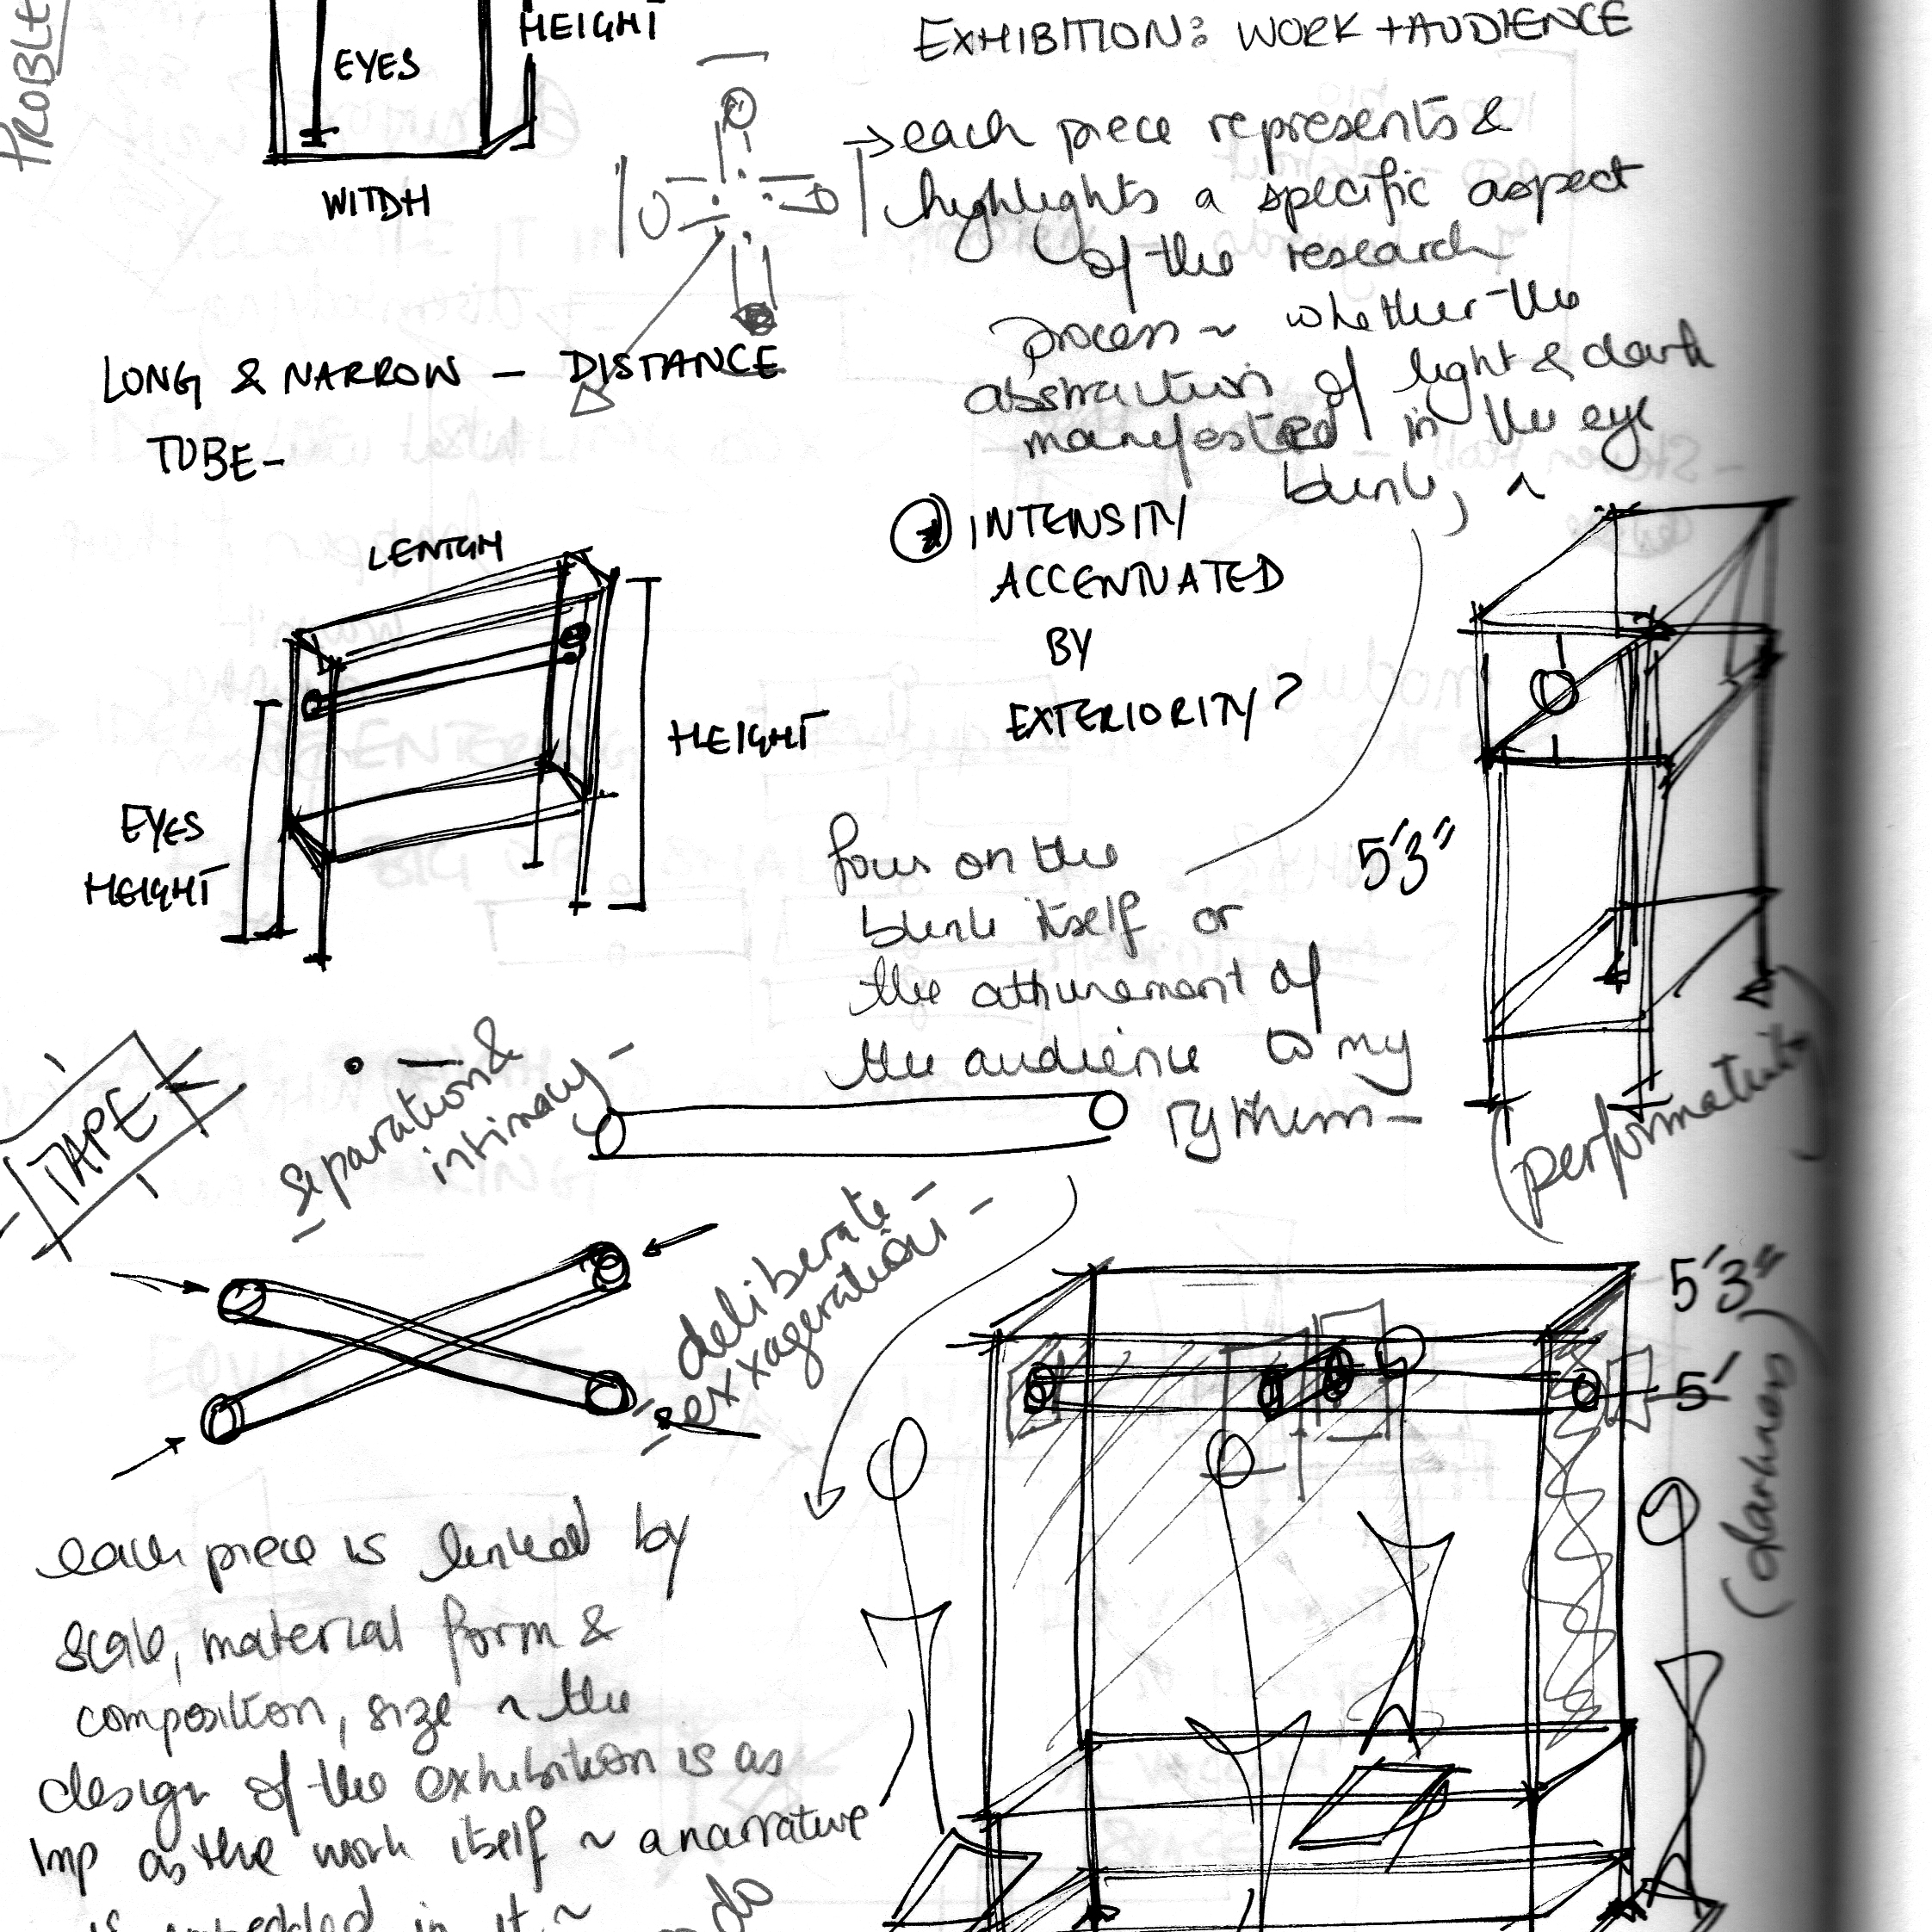 PROBLE
HEIGHT
EYES
WITDH
EXHIBITION: WORK + AUDIENCE
→ each piece represents &
highlights a specific aspect
of the research
process ~ whether the
abstraction of light & dark
manifested in the eye
blink, ~
LONG & NARROW — DISTANCE
TUBE-
INTENSITY
ACCENTUATED
BY
EXTERIORITY?
LENTGH
HEIGHT
EYES
HEIGHT
5'3"
focus on the
blink itself or
the attunement of
the audience to my
rythem -
(performativity)
TAPE
separation &
intimacy -
- deliberate -
- exxageration -
5'3"
5'
(darkness)
each piece is linked by
scale, material form &
composition, size ~ the
design of the exhibition is as
imp as the work itself ~ a narrative
is embedded in it ~
do